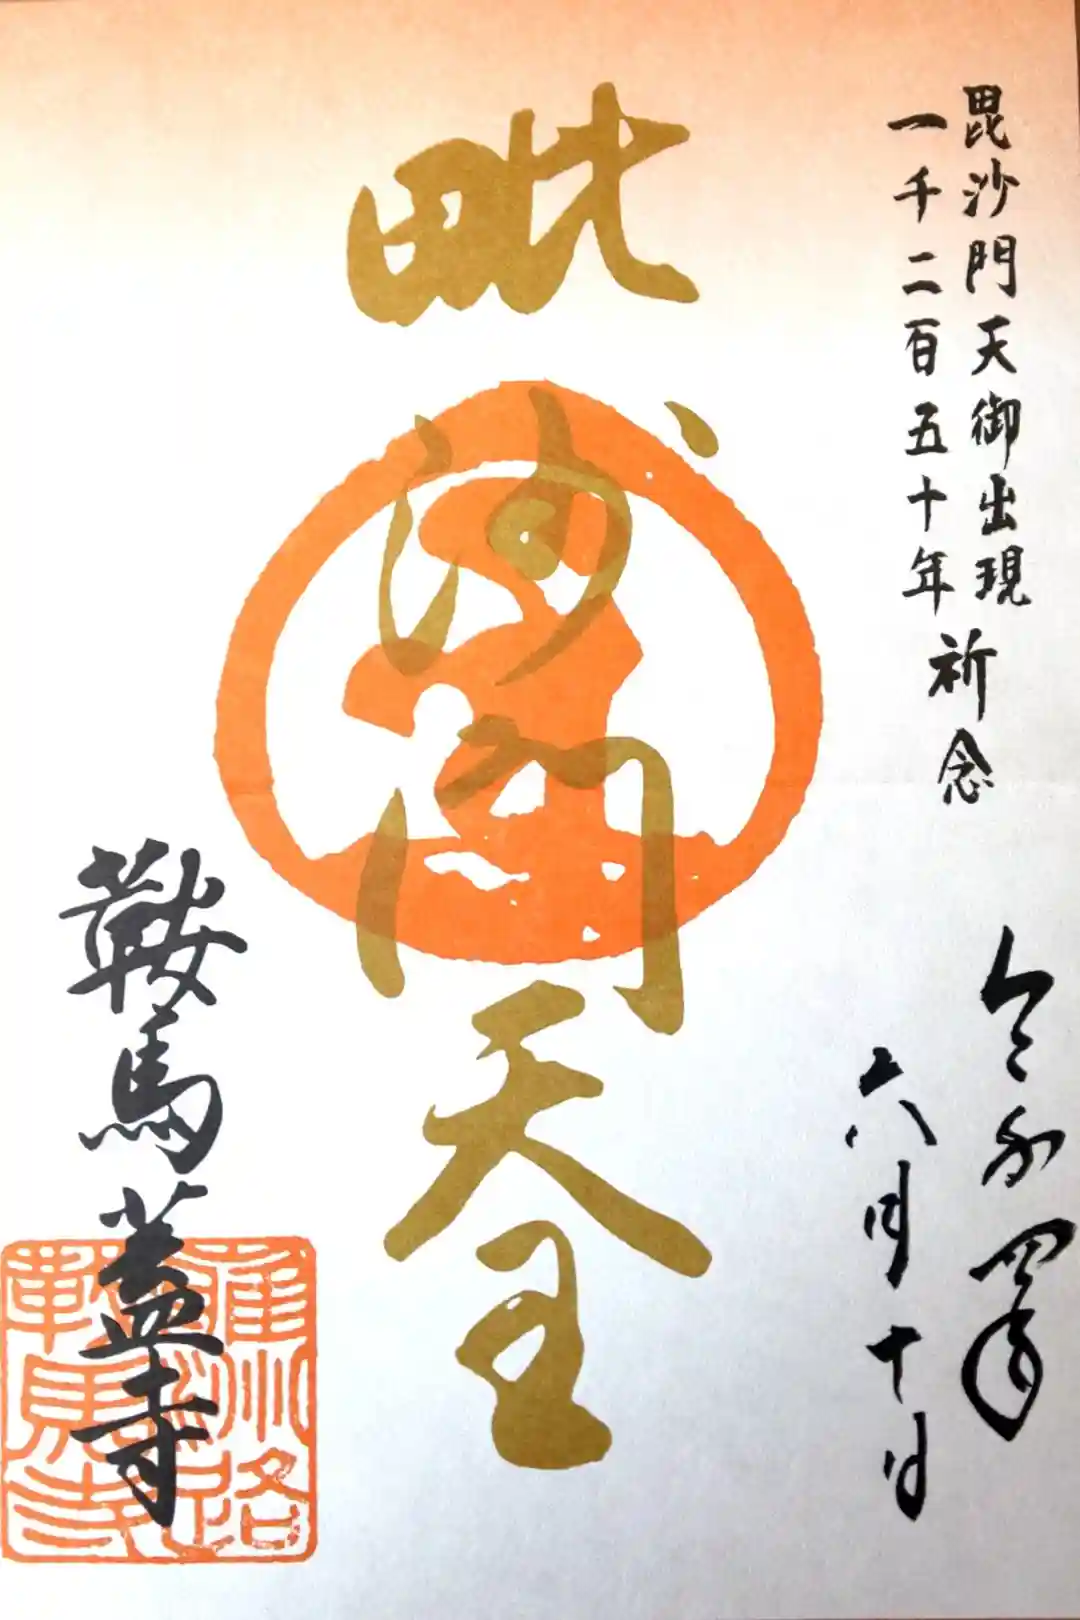 毘沙門天御出現
一千二百五十年
祈念
令和四年
六月十日
毗沙門天王
鞍馬蓋寺
雍州路
鞍馬寺